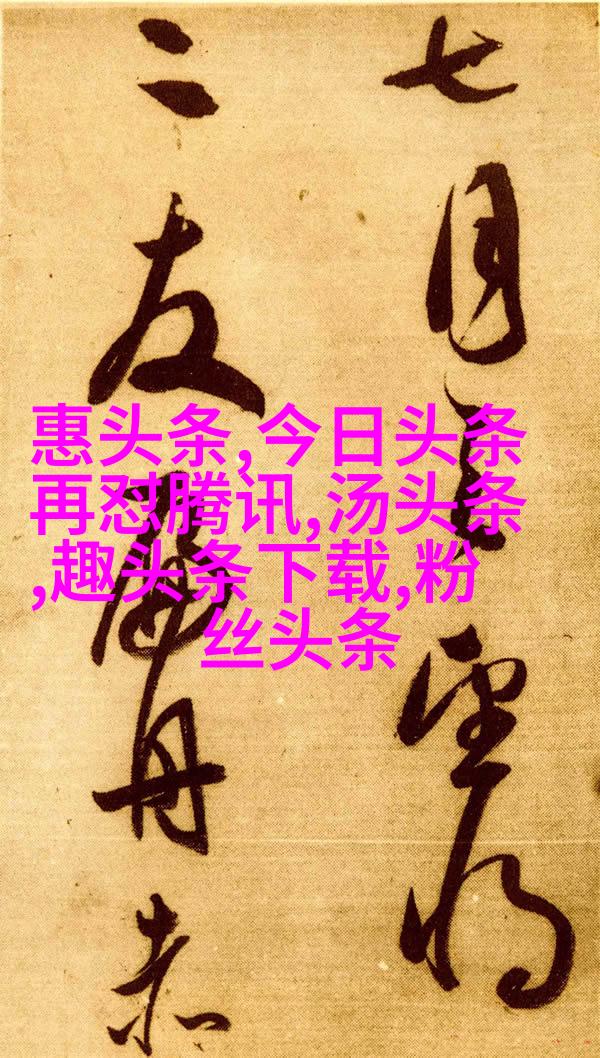 七月望将
二友舟赤
惠头条,今日头条
再怼腾讯,汤头条
,趣头条下载,粉
丝头条